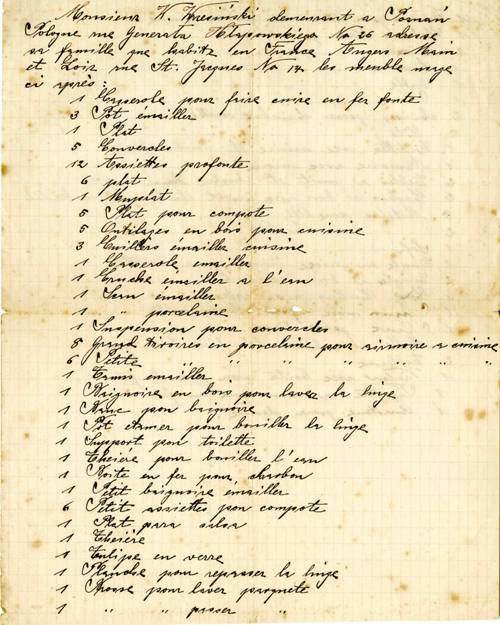 Monsieur W. Wresiński demeurant a Poznań
Pologne rue Generała Chłapowskiego No 26 adresse
sa famille que habitz en France Angers Main
et Loir rue St. Jacques No 14 les meuble usage
ci après :
1 Casserole pour faire cuire en fer fonte
3 Pot émailler
1 Plat
5 Convercles
12 Assiettes profonte
6 plat
1
5 Plat pour compote
5 Outilages en bois pour cuisine
3 Cuillers émailler cuisine
1 Casserole emailler
1 Cruche émailler a l'eau
1 Seau émailler
1 " porcelaine
1 Suspension pour convercles
5 Grand tiroires en porcelaine pour armoire a cuisine
6 Petite " " " " " "
1 Tamis emailler
1 Baignoire en bois pour laver la linge
1 Banc pour baignoire
1 Pot etamer pour bouiller la linge
1 Support pour toilette
1 Theiére pour bouiller l'eau
1 Boite en fer pour charbon
1 Petit baignoire emailler
6 Petit assiettes pour compote
1 Plat para salsa
1 Theiére
1 Tulipe en verre
1 Planche pour repasser la linge
1 Brosse pour laver parquete
1 " " passer "